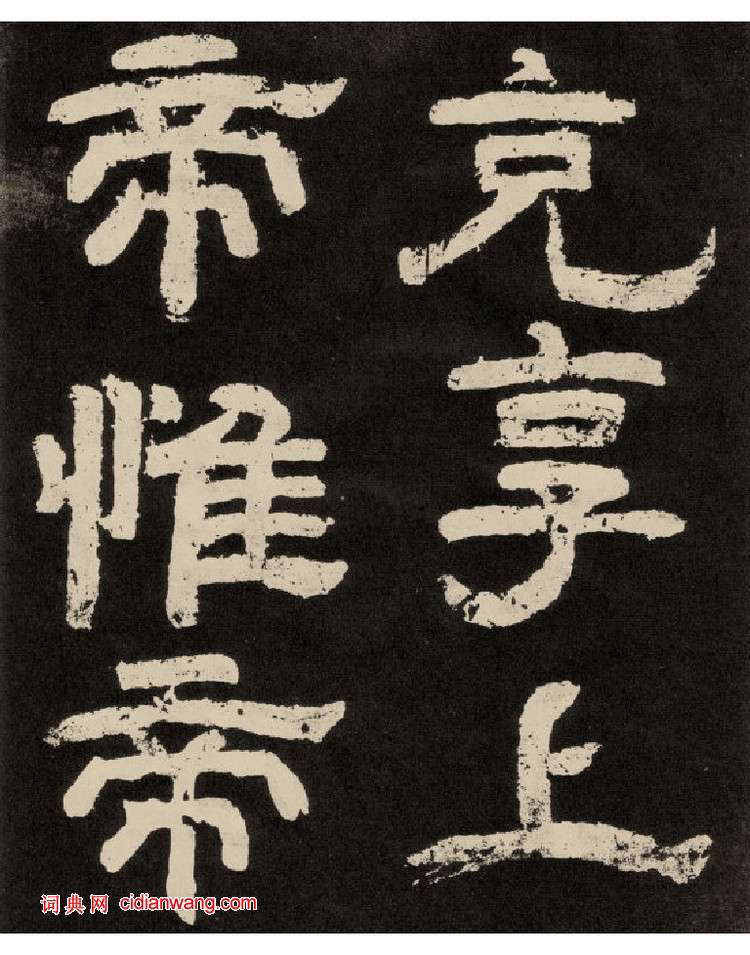 克享上
帝惟帝
词典网 cidianwang.com